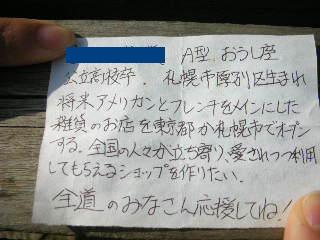 A型 おうし座
公立高校卒. 札幌市厚別区生まれ
将来アメリカンとフレンチをメインにした
雑貨のお店を東京都か札幌市でオープン
する。全国の人々が立ち寄り、愛されつつ利用
してもらえるショップを作りたい.
全道のみなさん応援してね!